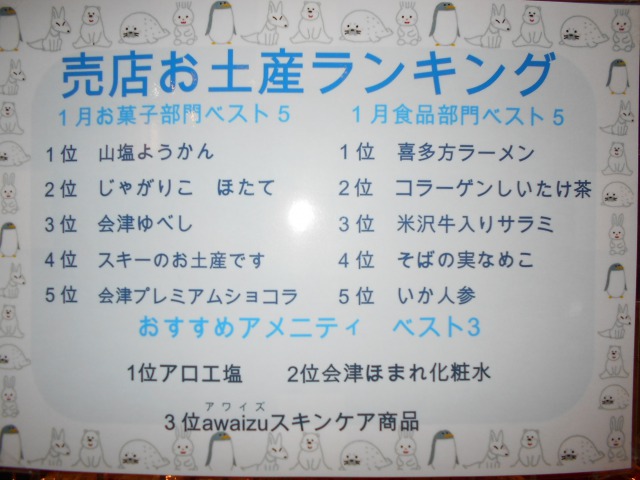 売店お土産ランキング
1月お菓子部門ベスト5
1位 山塩ようかん
2位 じゃがりこ ほたて
3位 会津ゆべし
4位 スキーのお土産です
5位 会津プレミアムショコラ
1月食品部門ベスト5
1位 喜多方ラーメン
2位 コラーゲンしいたけ茶
3位 米沢牛入りサラミ
4位 そばの実なめこ
5位 いか人参
おすすめアメニティ ベスト3
1位アロエ塩 2位会津ほまれ化粧水
アワイズ
3位awaizuスキンケア商品